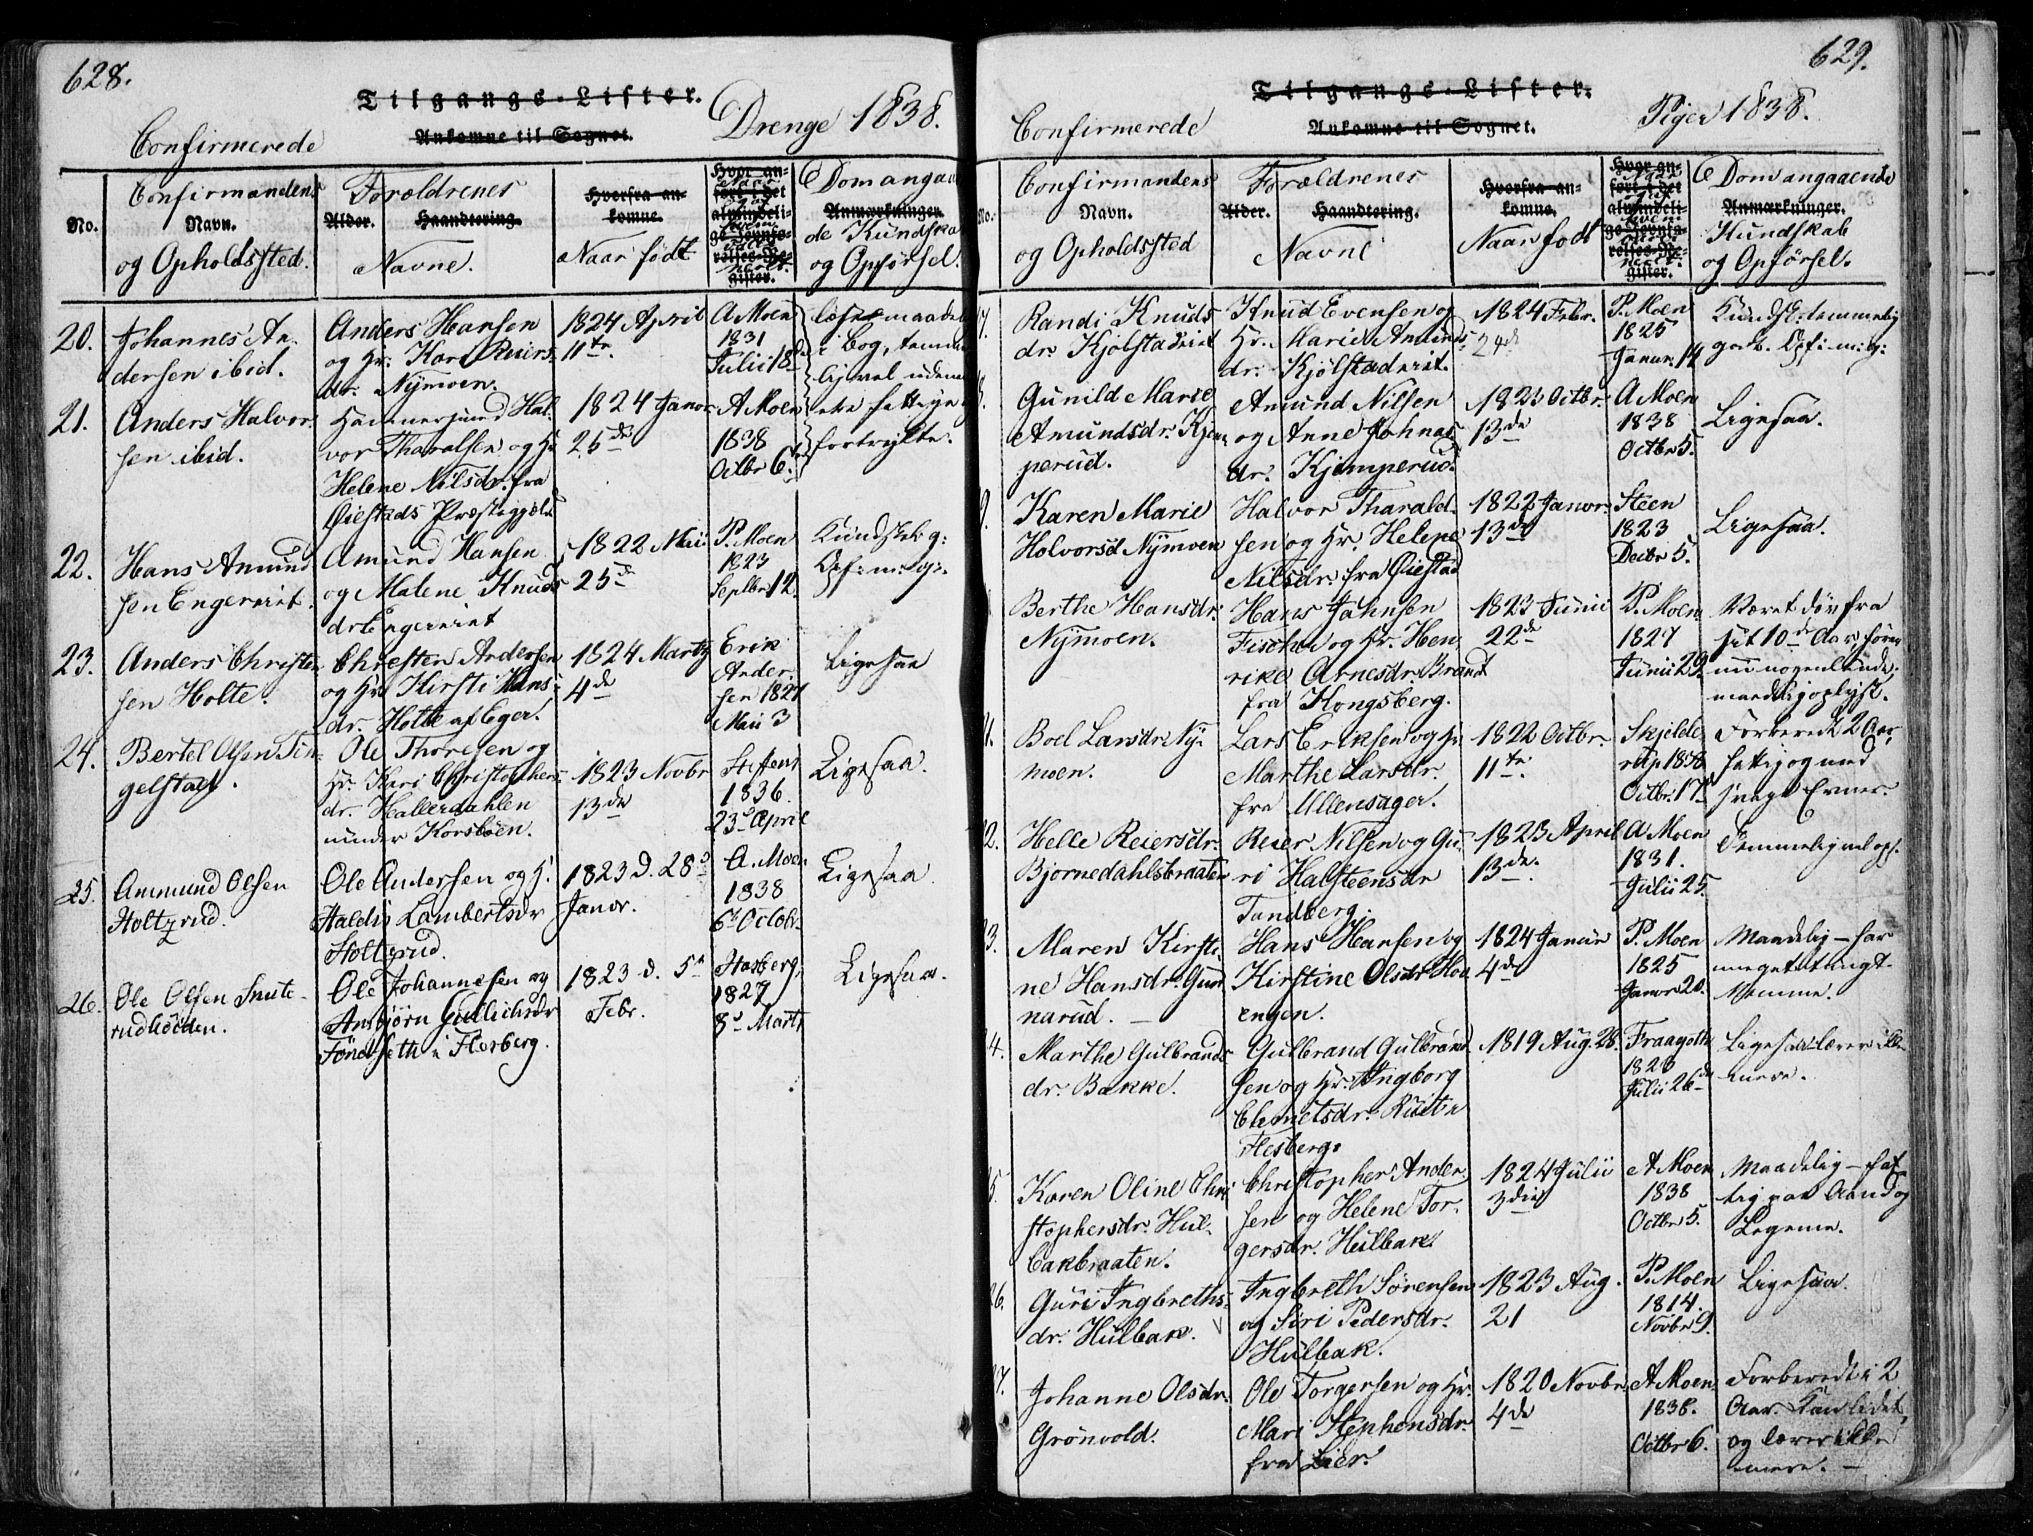 628.
Tilgangs-Lister.
Ankomne til Sognet.
Confirmerede
Drenge 1838.
No.
Confirmandens
Navn.
og Opholdssted.
Forældrenes
Alder. Haandtering.
Navne.
Hvorfra an-
komne.
Naar født
Hvor an-
ført i det
almindeli-
ge Jevnfø-
relses-Re-
gister.
Naar
Dom angaaen
Anmærkninger.
de Kundskab
og Opførsel.
20.
Johannes An-
dersen ibid.
Anders Hansen
og Hr. Kari Reiers
dr. Nymoen.
1824 April
11te
A Moen
1831
Julii 18
i Bog, temme
lig vel
21.
Anders Halvor
sen ibid.
Hal
vor Tharalsen og H
Helene Nilsdr. fra
Øiestads Præstegjeld
1824 Janor
25de
A Moen
1838
Octbr 6te
22.
Hans Amund
sen Engerniet.
Amund Hansen
og Malene Knuds
dr Engerniet
1822 Maii
25de
P. Moen
1823
Septbr. 12
Kundskab g:
Opf: m: g:.
23.
Anders Christen
sen Holte.
Christen Andersen
og Hr Kirsti Hans
dr. Holte af Eger.
1824 Marty
4de
Erik
Ander
sen 1827
Maii 3
Ligesaa
24.
Bertel Olsen Tin
gelstad.
Ole Thoresen og
Hr. Kari Christophers
dr. Hallerdahlen
under Korsbøen.
1823 Novbr
13de
Steffens
1836
23d April
Ligesaa.
25.
Ammund Olsen
Holtzrud
Ole Andersen og H.
Haldis Lambertsdr
Holtzrud.
1823 d. 28d
Janor.
A. Moen
1838
6te Octobr.
Ligesaa
26.
Ole Olsen Snute-
rudhølen.
Ole Johannesen og
Ansbjørn Gullichsdr
i Flesberg.
1823 d. 5te
Febr.
Hasberg
1827
8d Marti
Ligesaa.
629.
Tilgangs-Lister.
Ankomne til Sognet.
Confirmerede
Piger 1838.
No.
Confirmandens
Navn.
og Opholdssted
Forældrenes
Alder. Haandtering.
Navne
Hvorfra an-
komne.
Naar født
Hvor an-
ført i det
almindeli-
ge Jevnfø-
relses-Re-
gister.
Dom angaaende
Anmærkninger.
Kundskab
og Opførsel.
7.
Randi Knuds
dr. Kjølstadeiet
Knud Evensen og
Hr. Marie Amunds
dr. Kjølstadeiet.
1824 Febr.
24de
P. Moen
1825
Janur. 14
Kundsk: temmelig
god. Opf: m: g:
8.
Gunild Marie
Amundsdr. Kjem
perud.
Amund Nilsen
og Anne Johnas
dr. Kjemperud.
1823 Octbr.
13de
A Moen
1838
Octbr 5.
Ligesaa.
9.
Karen Marie
Holvorsd Nymoen
Halvor Tharald
sen og Hr. Helene
Nilsdr. fra Øiestad
1822 Janor.
13de
Steen
1823
Decbr 5.
Ligesaa.
Berthe Hansdr.
Nymoen.
Hans Jahnsen
Fischer og Hr. Hen
rike Arnesdr. Brandt
fra Kongsberg.
1823 Junii
22de
P. Moen
1827
Junii 29.
Været døv fra
sit 10de Aar hører
nu nogenlunde
maadelig oplyst.
1.
Boel Larsdr. Ny-
moen.
Lars Eriksen og H
Marthe Larsdr.
fra Ullensager.
1822 Octbr.
11te.
Skjelde
rup 1836
Octbr. 17
Forberedt 2 Aar,
fattig og med
svage Evner.
2.
Helle Reiersdr.
Bjørnedahlsbraaten
Reier Nilsen og Gu-
ri Halsteensdr
Tandberg.
1823 April
13de.
A Moen
1831.
Julii 25
Temmelig vel opl.
3.
Maren Kirsti-
ne Hansdr. Gun
narud. —
Hans Hansen og
Kirstine Olsdr. Hoa
engen.
1824 Janur
4de
P. Moen
1825
Janur 20.
Maadelig — har
meget tungt
Nemme.
4.
Marthe Gulbrands
dr. Bakke.
Gulbrand Gulbrand
sen og Hr. Ingborg
Clemetsdr. Ruit
Flesberg.
1819 Aug. 28.
Fraagoth
1820
Julii 26de
Ligesaa lærer ikke
mere.
5.
Karen Oline Chri
stophersdr. Hul-
bakbraaten.
Christopher Ander
sen og Helene Tor-
gersdr. Hulbak
1824 Julii
3die
A Moen
1838
Octbr 5.
Maadelig — fat
tig paa Aand og
Legeme.
26.
Guri Ingbreths-
dr. Hulbak.
Ingbreth Sørensen
og Siri Pedersdr.
Hulbak.
1823 Aug.
21
P. Moen
1814.
Novbr 9.
Ligesaa.
7.
Johanne Olsdr.
Grønvold.
Ole Torgersen og Hr.
Mari Stephensdr.
fra Lier.
1820 Novbr
4de
A Moen
1838.
Octbr 6.
Forberedt i 2
Aar. Kan lidet,
og lærer ikke
mere. —